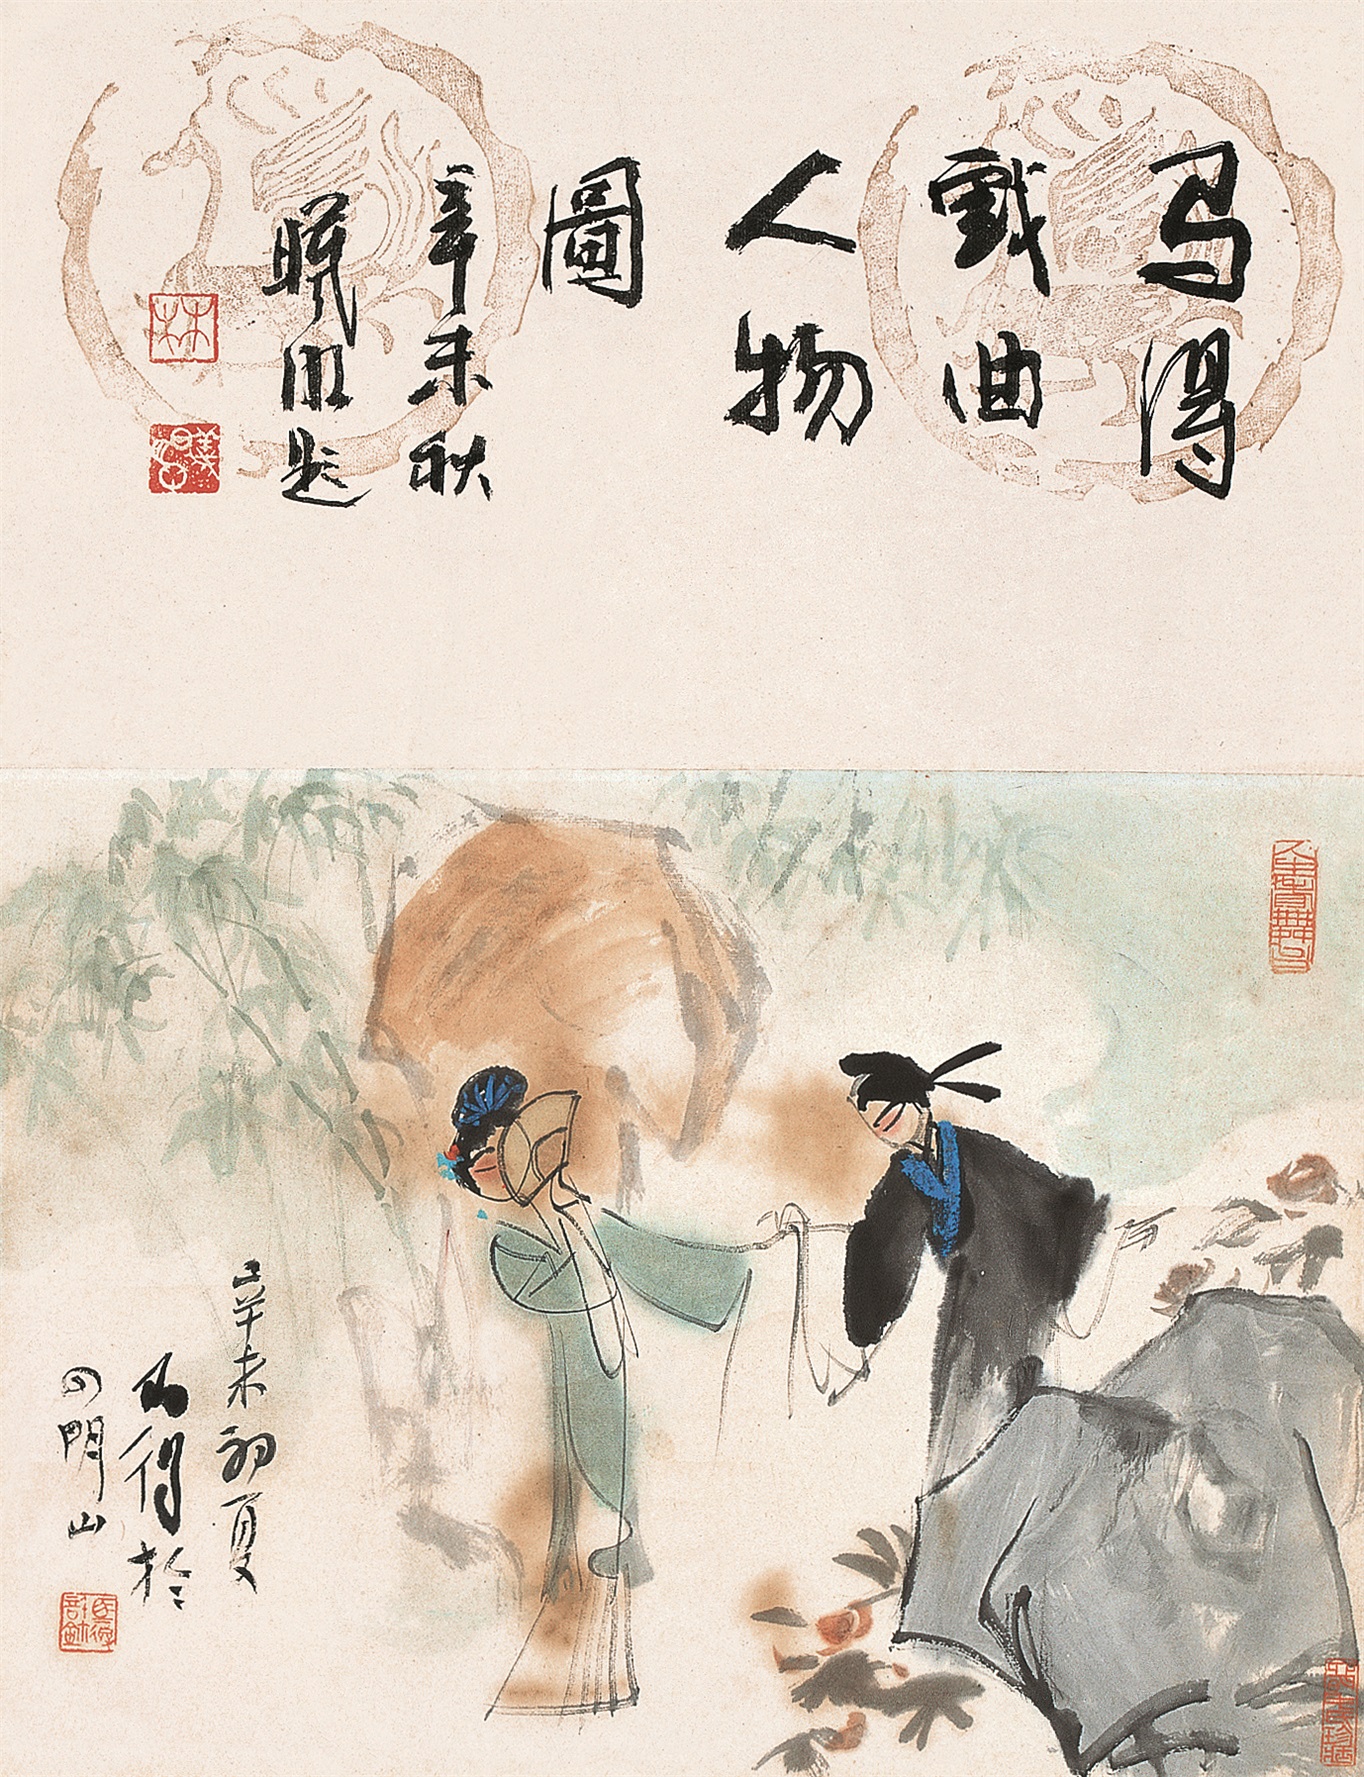 马得
戲曲
人物
圖
辛未秋
曦明题
林
辛未初夏
马得於
四明山